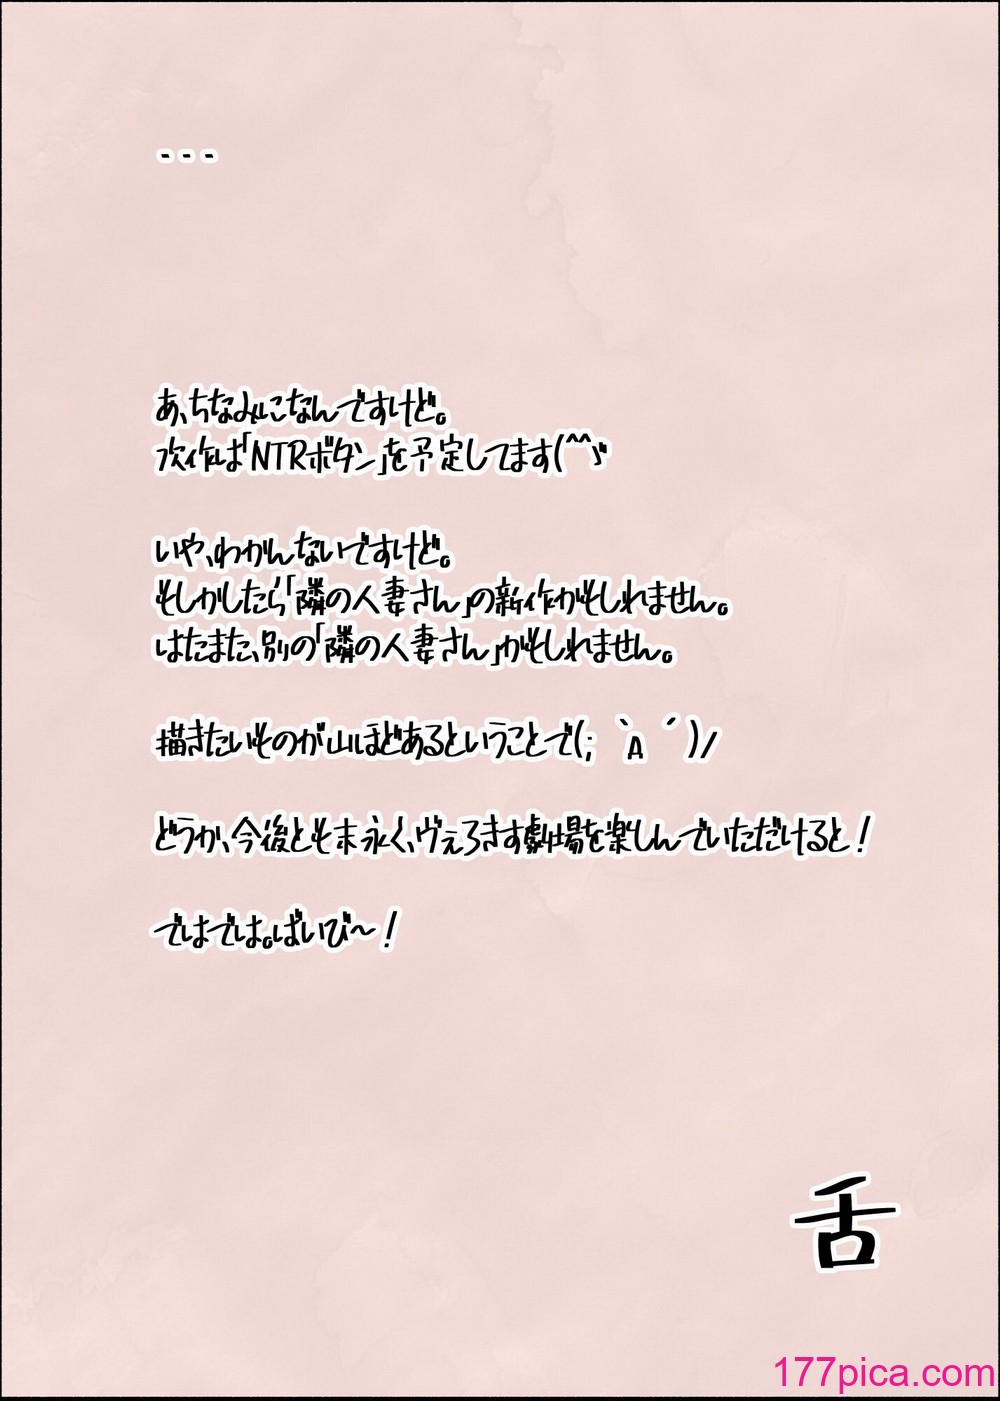 ---
あ、ちなみになんですけど。
次作は「NTRボタン」を予定してます(^^ゞ
いや、わかんないですけど。
もしかしたら「隣の人妻さん」の新作かもしれません。
はたまた、別の「隣の人妻さん」かもしれません。
描きたいものが山ほどあるということで(;｀A´)/
どうか、今後とも末永く、ヴぇろきす劇場を楽しんでいただけると!
ではでは。ばいび〜!
舌
177pica.com